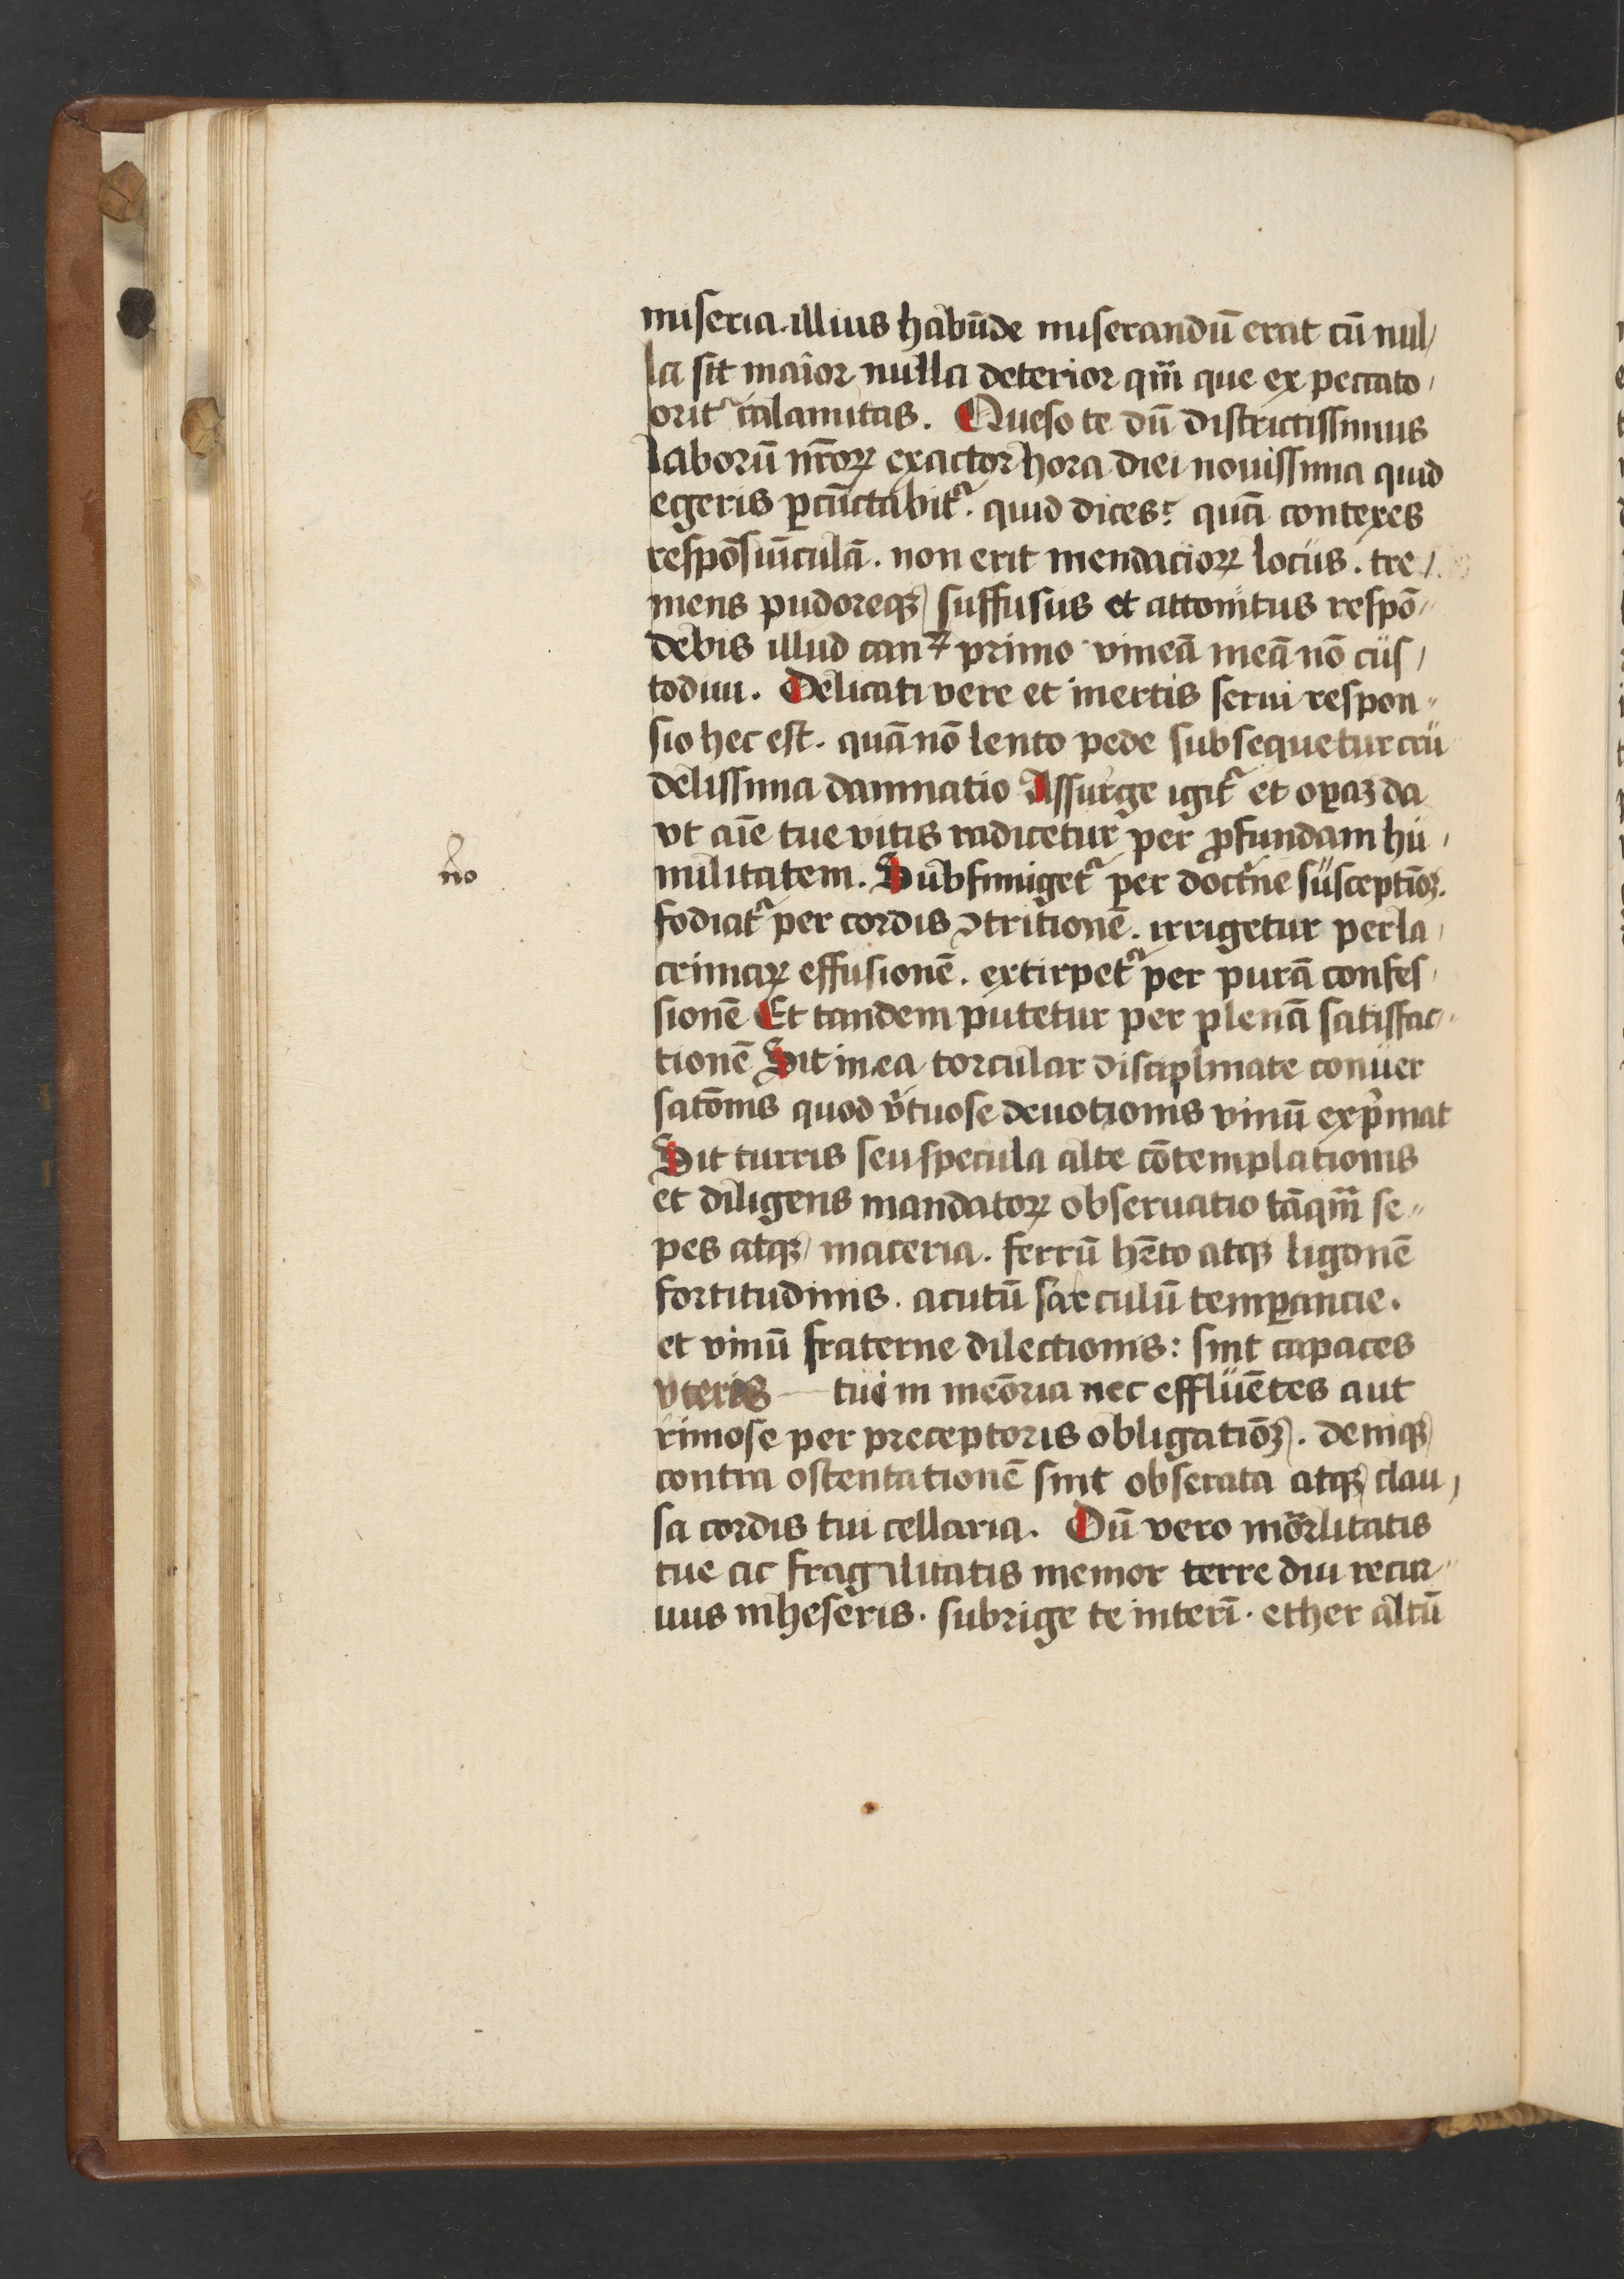 miseria illius habūde miserandū erat cū nul/
la sit maior nulla deterior qm̄ que ex peccato
oritᷣ calamitas. Queso te dū districtissimus
laborū nr̄oꝝ exactor hora diei nouissima quid
egeris ꝑcūctabitᷣ. quid dices? quā contexes
respōsiūculā. non erit mendacioꝝ locus. tre/
mens pudoreqꝫ suffusus et attonitus respō//
debis illud can⁊ primo vineā meā nō cus/
todiui. Delicati vere et inertis serui respon//
sio hec est. quā nō lento pede subsequetur cru
delissima damnatio Assurge igitᷣ et oꝑaꝫ da
vt aīe tue vitis radicetur per ꝓfundam hu/
militatem. Subfimigetᷣ per doctrīe susceptiōꝫ.
fodiatᷣ per cordis ꝯtritionē. irrigetur per la/
crimaꝝ effusionē. extirpetᷣ per purā confes/
sionē Et tandem putetur per plenā satisfac//
tionē Sit in ea torcular disciplinate conuer
satōnis quod v̄tuose deuotionis vinū exp̄mat
Sit turris seu specula alte cōtemplationis
et diligens mandatoꝝ obseruatio tāqm̄ se//
pes atqꝫ maceria. ferrū hēto atqꝫ ligonē
fortitudinis. acutū sarculū temꝑancie.
et vinū fraterne dilectionis: sint capaces
vteris tui in meōria nec effluētes aut
rimose per preceptoris obligatiōꝫ. deniqꝫ
contra ostentationē sint obserata atqꝫ clau/
sa cordis tui cellaria. Dū vero mōrlitatis
tue ac fragilitatis memor terre diu recur//
uus inheseris. subrige te interī. ether altū
no